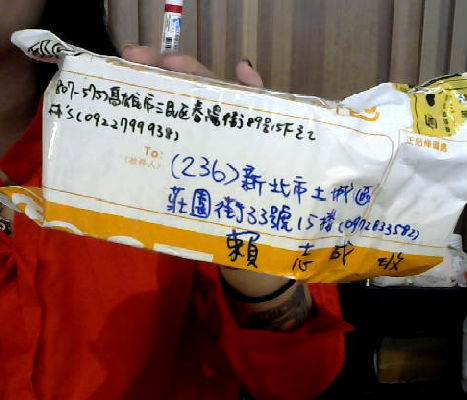 807-57 高雄市三民區春陽街89號15F之2
(0922799938)
To:
(收件人)
(236)新北市土城區
莊園街33號15樓(0972833582)
賴志成 收
正貼條碼處